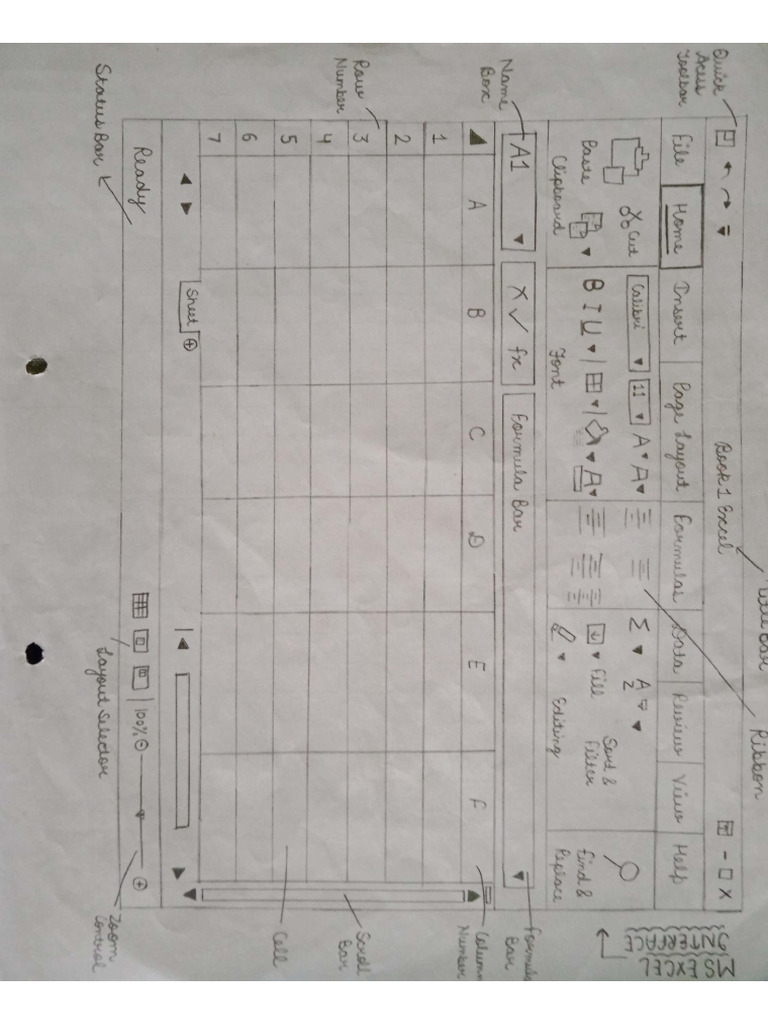 MS EXCEL
INTERFACE
Quick
Access
Toolbar
Book 1 Excel
Title Bar
Ribbon
File Home Insert Page Layout Formulas Data Review View Help
Cut
Calibri 11 A A
Σ A
Z
Paste
B I U A
Fill
Sort &
Filter
Find &
Replace
Clipboard
Font
Editing
Name
Box
A1
X ✓ fx
Formula Bar
Formula
Bar
A B C D E F
Column
Number
1
2
3
4
5
6
7
Row
Number
Scroll
Bar
Cell
Sheet
Ready
100%
Status Bar
Layout Selector
Zoom
Control